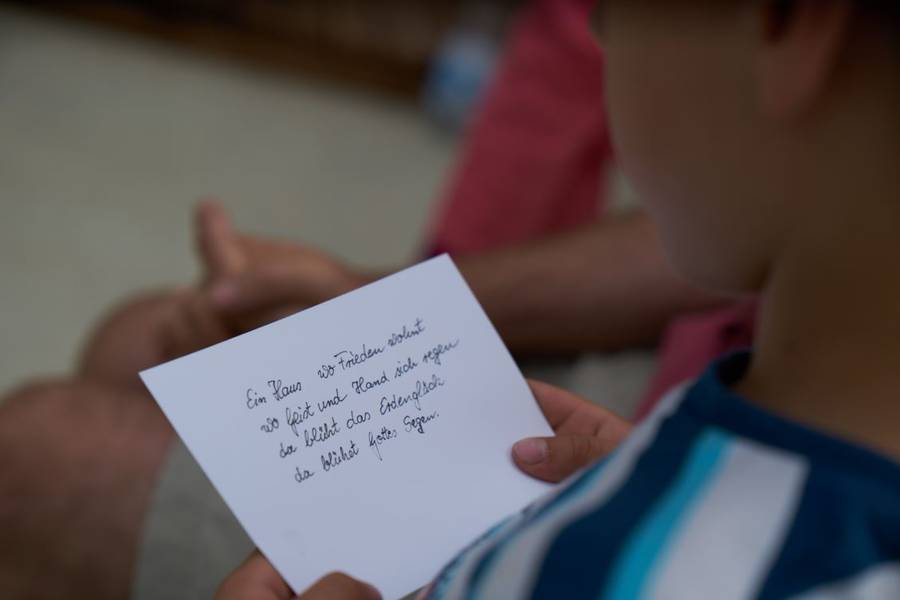 Ein Haus wo Frieden wohnt
wo Geist und Hand sich regen
da blüht das Erdenglück
da blühet Gottes Segen.